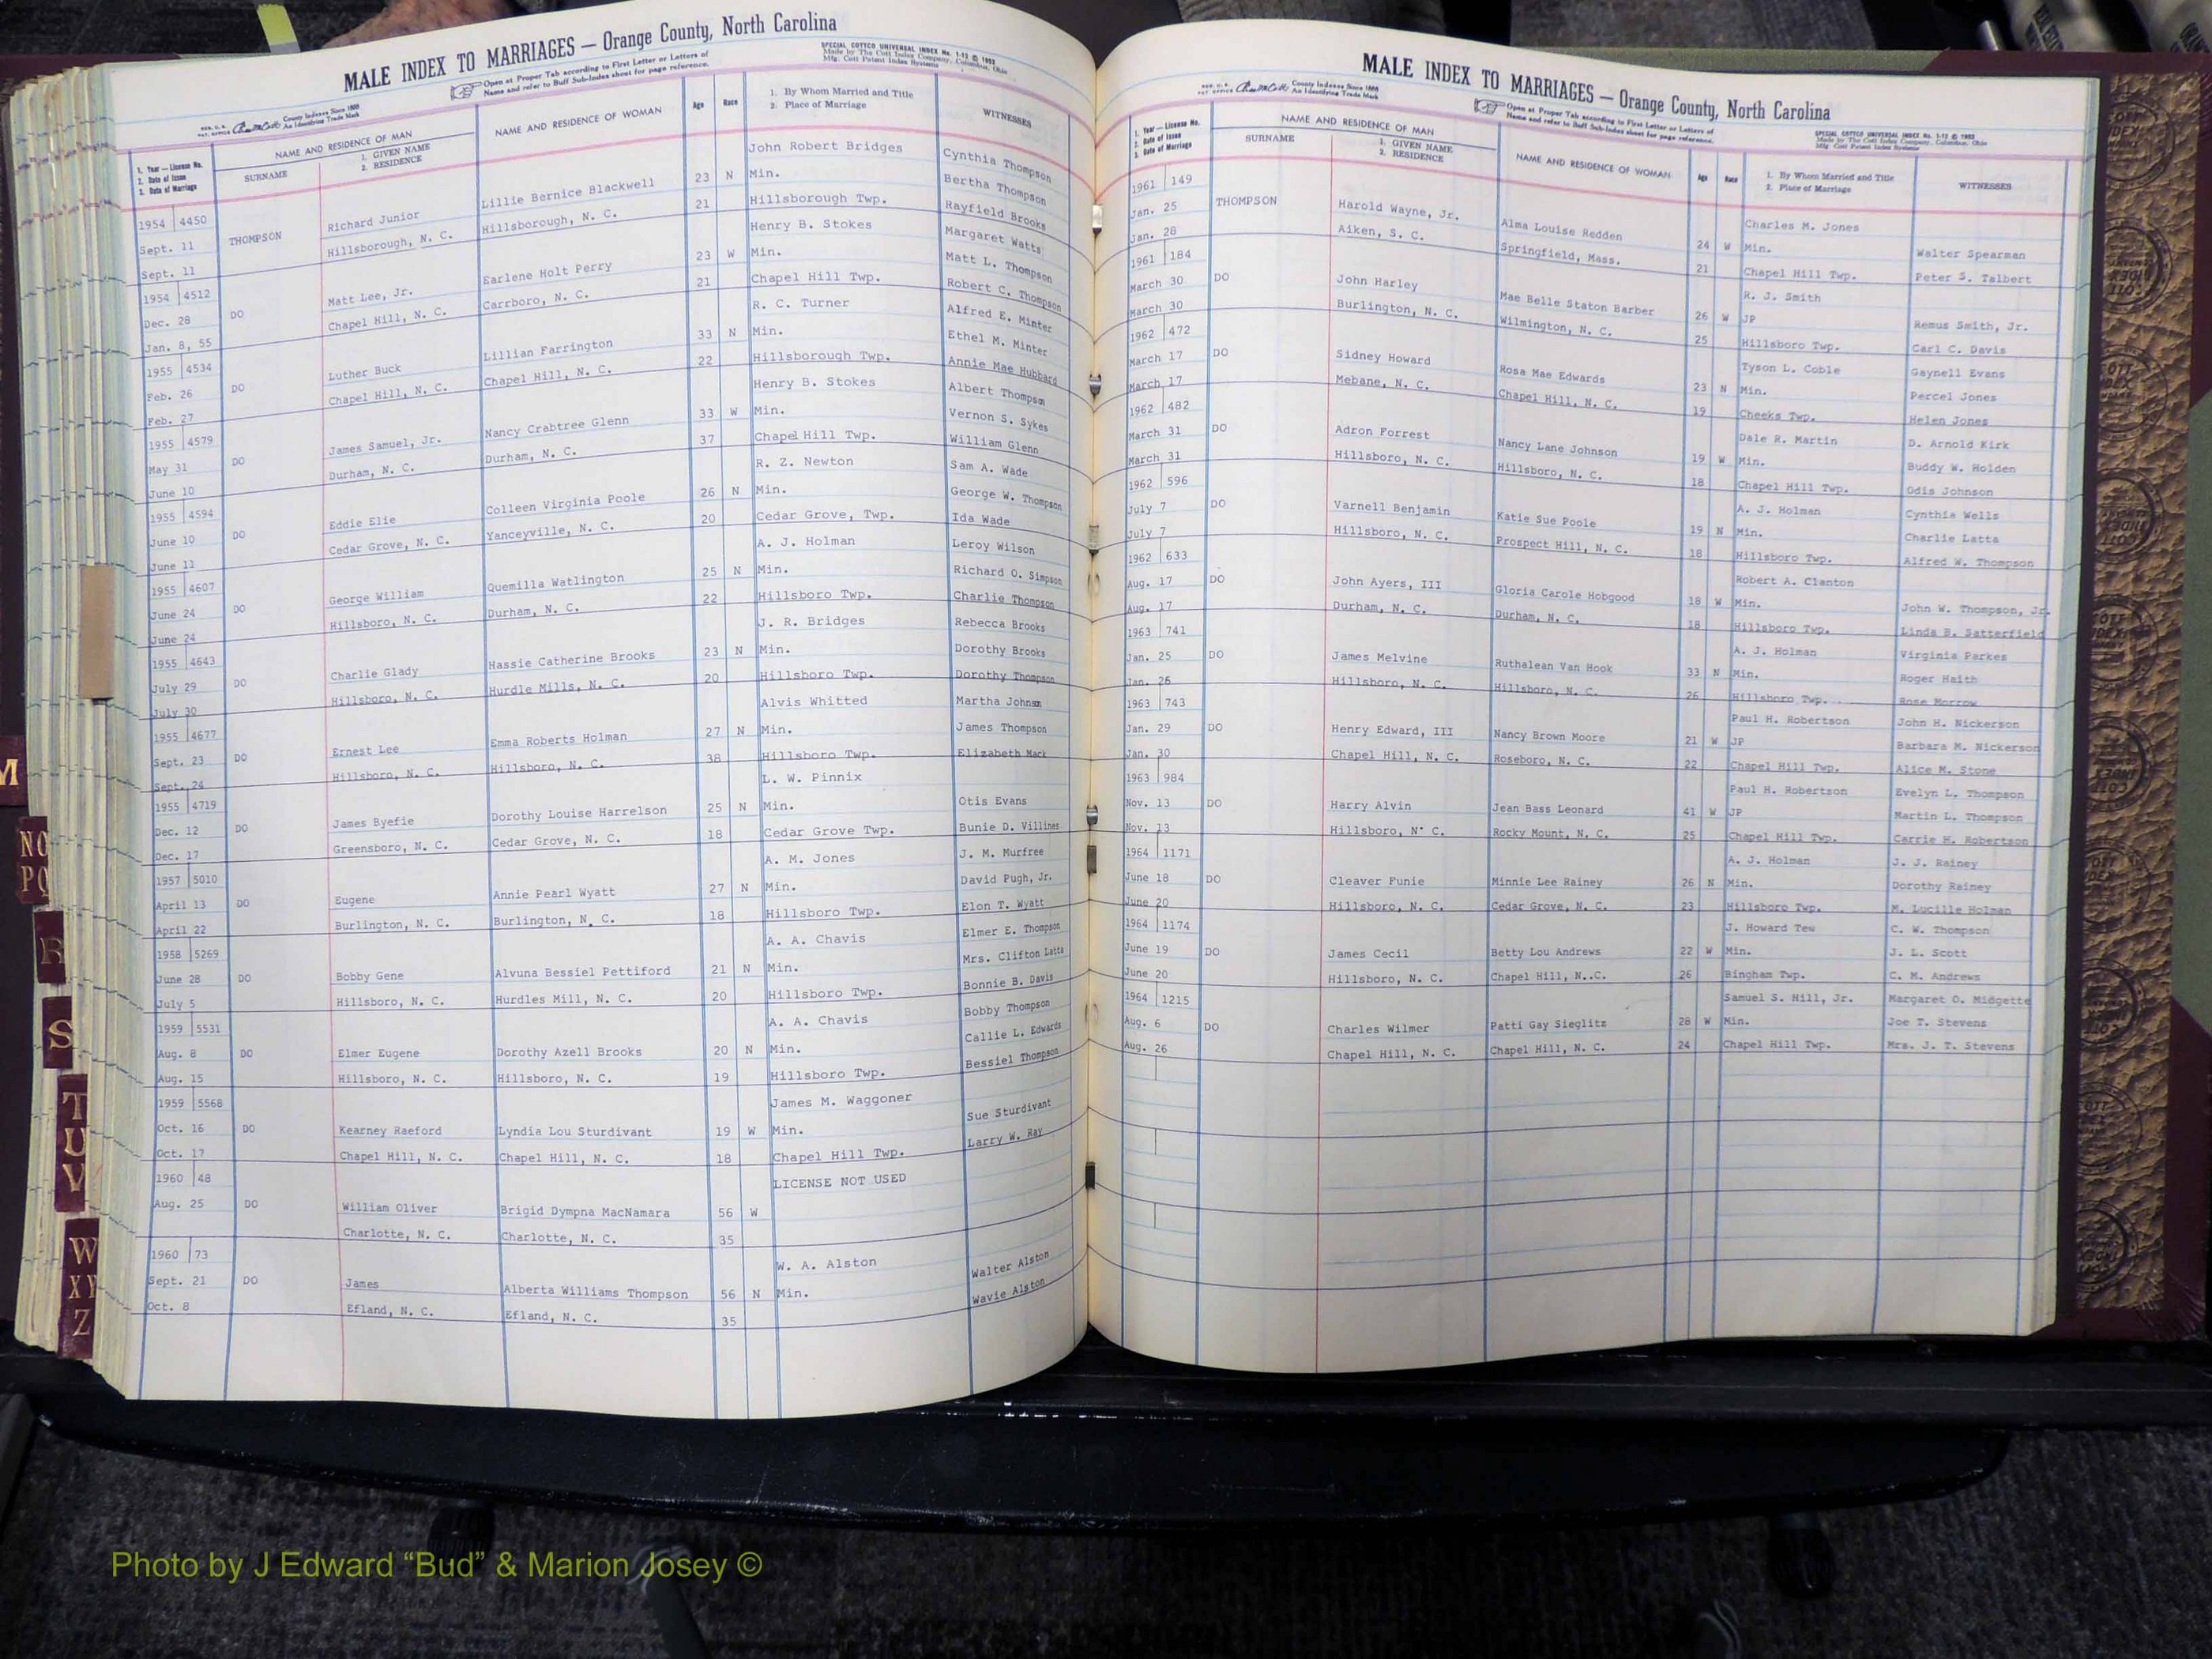 MALE INDEX TO MARRIAGES — Orange County, North Carolina
Open at Proper Tab according to First Letter or Letters of
Name and refer to Buff Sub-Index sheet for page reference.
SPECIAL COTTCO UNIVERSAL INDEX No. 1-12 © 1952
Made by The Cott Index Company, Columbus, Ohio
Mfg. Cott Patent Index Systems
County Indexes Since 1888
An Identifying Trade Mark
1. Year — License No.
2. Date of Issue
3. Date of Marriage
NAME AND RESIDENCE OF MAN
SURNAME
1. GIVEN NAME
2. RESIDENCE
NAME AND RESIDENCE OF WOMAN
Age
Race
1. By Whom Married and Title
2. Place of Marriage
WITNESSES
John Robert Bridges Cynthia Thompson
1954 4450 Richard Junior Lillie Bernice Blackwell 23 N Min. Bertha Thompson
Sept. 11 THOMPSON Hillsborough, N. C. Hillsborough, N. C. 21 Hillsborough Twp. Rayfield Brooks
Sept. 11
Henry B. Stokes Margaret Watts
1954 4512 Matt Lee, Jr. Earlene Holt Perry 23 W Min. Matt L. Thompson
Dec. 28 DO Chapel Hill, N. C. Carrboro, N. C. 21 Chapel Hill Twp. Robert C. Thompson
Jan. 8, 55
R. C. Turner Alfred E. Minter
1955 4534 Luther Buck Lillian Farrington 33 N Min. Ethel M. Minter
Feb. 26 DO Chapel Hill, N. C. Chapel Hill, N. C. 22 Hillsborough Twp. Annie Mae Hubbard
Feb. 27
Henry B. Stokes Albert Thompson
1955 4579 James Samuel, Jr. Nancy Crabtree Glenn 33 W Min. Vernon S. Sykes
May 31 DO Durham, N. C. Durham, N. C. 37 Chapel Hill Twp. William Glenn
June 10
R. Z. Newton Sam A. Wade
1955 4594 Eddie Elie Colleen Virginia Poole 26 N Min. George W. Thompson
June 10 DO Cedar Grove, N. C. Yanceyville, N. C. 20 Cedar Grove, Twp. Ida Wade
June 11
A. J. Holman Leroy Wilson
1955 4607 George William Quemilla Watlington 25 N Min. Richard O. Simpson
June 24 DO Hillsboro, N. C. Durham, N. C. 22 Hillsboro Twp. Charlie Thompson
June 24
J. R. Bridges Rebecca Brooks
1955 4643 Charlie Glady Hassie Catherine Brooks 23 N Min. Dorothy Brooks
July 29 DO Hillsboro, N. C. Hurdle Mills, N. C. 20 Hillsboro Twp. Dorothy Thompson
July 30
Alvis Whitted Martha Johnson
1955 4677 Ernest Lee Emma Roberts Holman 27 N Min. James Thompson
Sept. 23 DO Hillsboro, N. C. Hillsboro, N. C. 38 Hillsboro Twp. Elizabeth Mack
Sept. 24
L. W. Pinnix
1955 4719 James Byefie Dorothy Louise Harrelson 25 N Min. Otis Evans
Dec. 12 DO Greensboro, N. C. Cedar Grove, N. C. 18 Cedar Grove Twp. Bunie D. Villines
Dec. 17
A. M. Jones J. M. Murfree
1957 5010 Eugene Annie Pearl Wyatt 27 N Min. David Pugh, Jr.
April 13 DO Burlington, N. C. Burlington, N. C. 18 Hillsboro Twp. Elon T. Wyatt
April 22
A. A. Chavis Elmer E. Thompson
1958 5269 Bobby Gene Alvuna Bessiel Pettiford 21 N Min. Mrs. Clifton Latta
June 28 DO Hillsboro, N. C. Hurdles Mill, N. C. 20 Hillsboro Twp. Bonnie B. Davis
July 5
A. A. Chavis Bobby Thompson
1959 5531 Elmer Eugene Dorothy Azell Brooks 20 N Min. Callie L. Edwards
Aug. 8 DO Hillsboro, N. C. Hillsboro, N. C. 19 Hillsboro Twp. Bessiel Thompson
Aug. 15
James M. Waggoner
1959 5568 Kearney Raeford Lyndia Lou Sturdivant 19 W Min. Sue Sturdivant
Oct. 16 DO Chapel Hill, N. C. Chapel Hill, N. C. 18 Chapel Hill Twp. Larry W. Ray
Oct. 17
LICENSE NOT USED
1960 48 William Oliver Brigid Dympna MacNamara 56 W
Aug. 25 DO Charlotte, N. C. Charlotte, N. C. 35
W. A. Alston
1960 73 James Alberta Williams Thompson 56 N Min. Walter Alston
Sept. 21 DO Efland, N. C. Efland, N. C. 35 Wavie Alston
Oct. 8
MALE INDEX TO MARRIAGES — Orange County, North Carolina
Open at Proper Tab according to First Letter or Letters of
Name and refer to Buff Sub-Index sheet for page reference.
SPECIAL COTTCO UNIVERSAL INDEX No. 1-12 © 1952
Made by The Cott Index Company, Columbus, Ohio
Mfg. Cott Patent Index Systems
County Indexes Since 1888
An Identifying Trade Mark
1. Year — License No.
2. Date of Issue
3. Date of Marriage
NAME AND RESIDENCE OF MAN
SURNAME
1. GIVEN NAME
2. RESIDENCE
NAME AND RESIDENCE OF WOMAN
Age
Race
1. By Whom Married and Title
2. Place of Marriage
WITNESSES
1961 149 Charles M. Jones
Jan. 25 THOMPSON Harold Wayne, Jr. Alma Louise Redden 24 W Min. Walter Spearman
Jan. 28 Aiken, S. C. Springfield, Mass. 21 Chapel Hill Twp. Peter S. Talbert
1961 184 R. J. Smith
March 30 DO John Harley Mae Belle Staton Barber 26 W JP Remus Smith, Jr.
March 30 Burlington, N. C. Wilmington, N. C. 25 Hillsboro Twp. Carl C. Davis
1962 472 Tyson L. Coble Gaynell Evans
March 17 DO Sidney Howard Rosa Mae Edwards 23 N Min. Percel Jones
March 17 Mebane, N. C. Chapel Hill, N. C. 19 Cheeks Twp. Helen Jones
1962 482 Dale R. Martin D. Arnold Kirk
March 31 DO Adron Forrest Nancy Lane Johnson 19 W Min. Buddy W. Holden
March 31 Hillsboro, N. C. Hillsboro, N. C. 18 Chapel Hill Twp. Odis Johnson
1962 596 A. J. Holman Cynthia Wells
July 7 DO Varnell Benjamin Katie Sue Poole 19 N Min. Charlie Latta
July 7 Hillsboro, N. C. Prospect Hill, N. C. 18 Hillsboro Twp. Alfred W. Thompson
1962 633 Robert A. Clanton
Aug. 17 DO John Ayers, III Gloria Carole Hobgood 18 W Min. John W. Thompson, Jr.
Aug. 17 Durham, N. C. Durham, N. C. 18 Hillsboro Twp. Linda B. Satterfield
1963 741 A. J. Holman Virginia Parkes
Jan. 25 DO James Melvine Ruthalean Van Hook 33 N Min. Roger Haith
Jan. 26 Hillsboro, N. C. Hillsboro, N. C. 26 Hillsboro Twp. Rose Morrow
1963 743 Paul H. Robertson John H. Nickerson
Jan. 29 DO Henry Edward, III Nancy Brown Moore 21 W JP Barbara M. Nickerson
Jan. 30 Chapel Hill, N. C. Roseboro, N. C. 22 Chapel Hill Twp. Alice M. Stone
1963 984 Paul H. Robertson Evelyn L. Thompson
Nov. 13 DO Harry Alvin Jean Bass Leonard 41 W JP Martin L. Thompson
Nov. 13 Hillsboro, N. C. Rocky Mount, N. C. 25 Chapel Hill Twp. Carrie H. Robertson
1964 1171 A. J. Holman J. J. Rainey
June 18 DO Cleaver Funie Minnie Lee Rainey 26 N Min. Dorothy Rainey
June 20 Hillsboro, N. C. Cedar Grove, N. C. 23 Hillsboro Twp. M. Lucille Holman
1964 1174 J. Howard Tew C. W. Thompson
June 19 DO James Cecil Betty Lou Andrews 22 W Min. J. L. Scott
June 20 Hillsboro, N. C. Chapel Hill, N..C. 26 Bingham Twp. C. M. Andrews
1964 1215 Samuel S. Hill, Jr. Margaret O. Midgette
Aug. 6 DO Charles Wilmer Patti Gay Sieglitz 28 W Min. Joe T. Stevens
Aug. 26 Chapel Hill, N. C. Chapel Hill, N. C. 24 Chapel Hill Twp. Mrs. J. T. Stevens
M
NO
PQ
R
S
T
U
V
W
XY
Z
Photo by J Edward “Bud” & Marion Josey ©